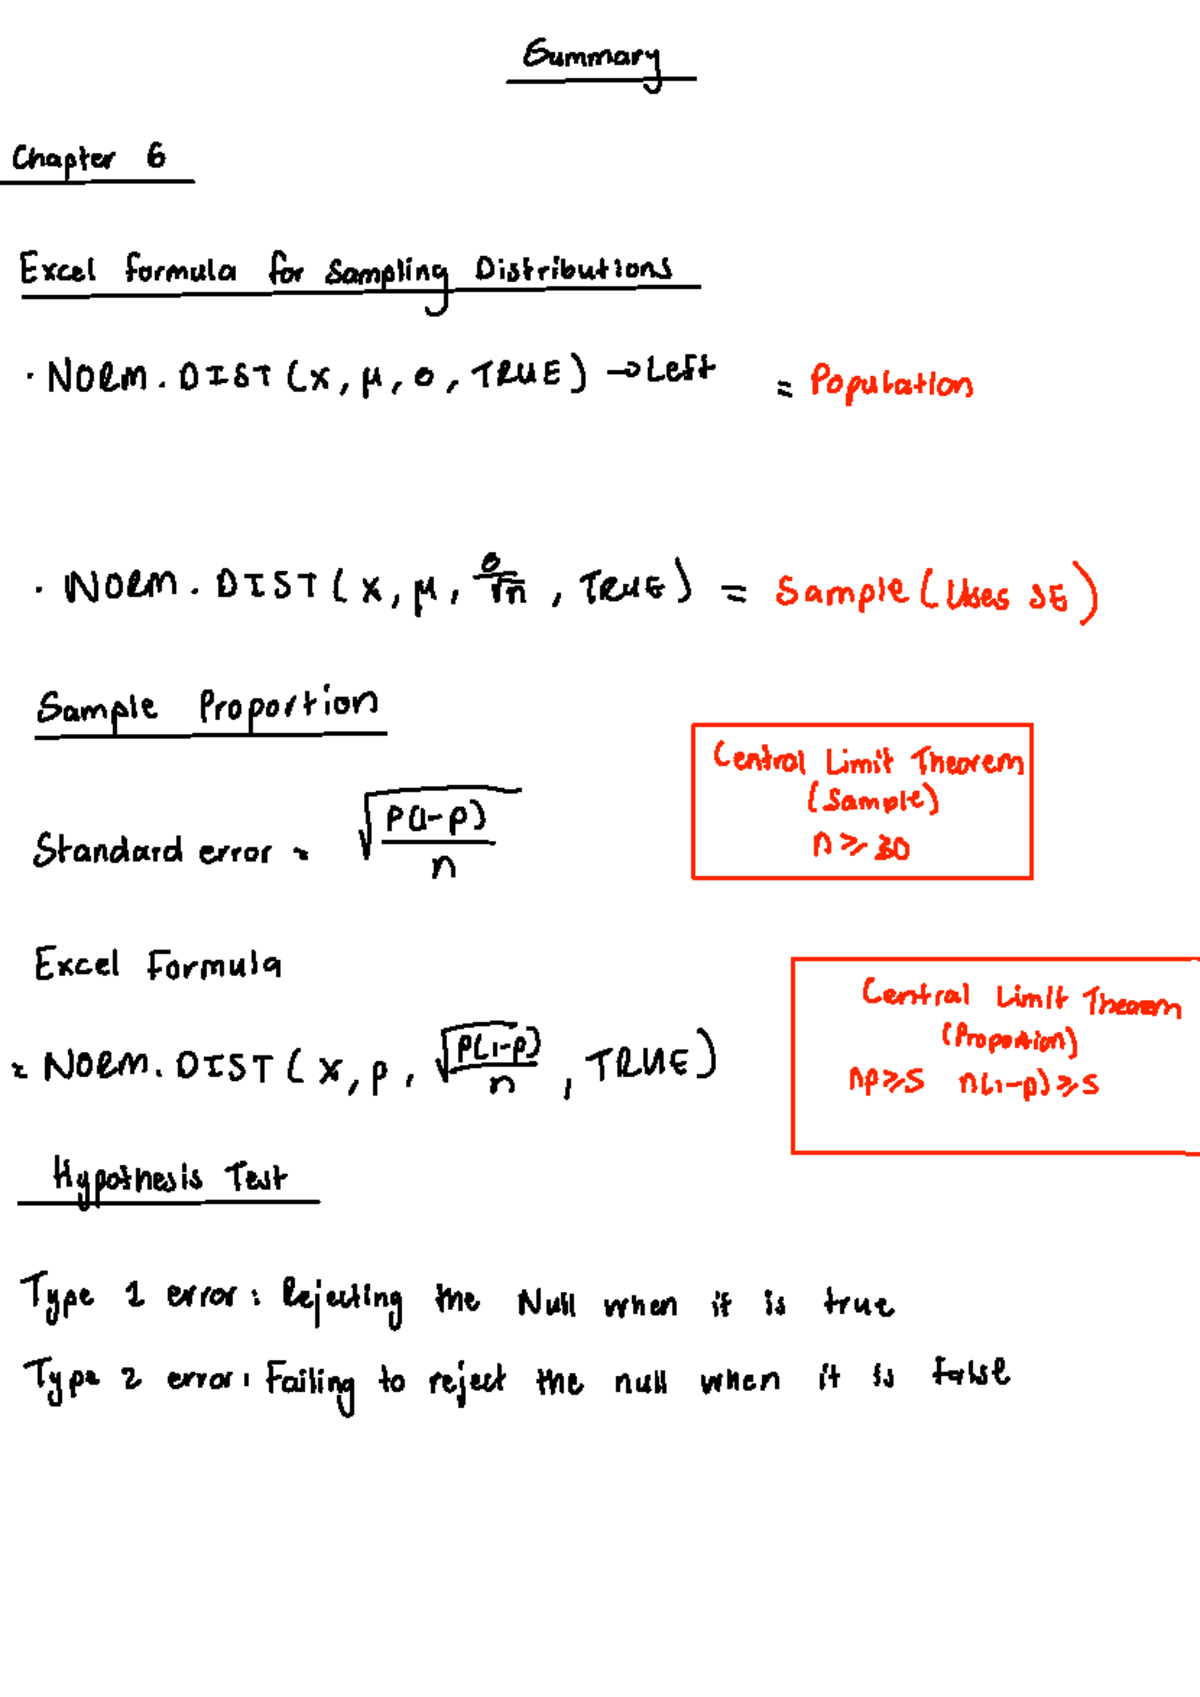 Summary
Chapter 6
Excel formula for Sampling Distributions
· NORM.DIST (x, μ, σ, TRUE) → Left = Population
· NORM.DIST (x, μ, σ/√n, TRUE) = Sample (Uses SE)
Sample Proportion
Central Limit Theorem
(Sample)
n ≥ 30
Standard error = √(P(1-P)/n)
Excel Formula
Central Limit Theorem
(Proportion)
np ≥ 5 n(1-p) ≥ 5
= NORM.DIST (x, p, √(P(1-P)/n), TRUE)
Hypothesis Test
Type 1 error: Rejecting the Null when it is true
Type 2 error: Failing to reject the null when it is false